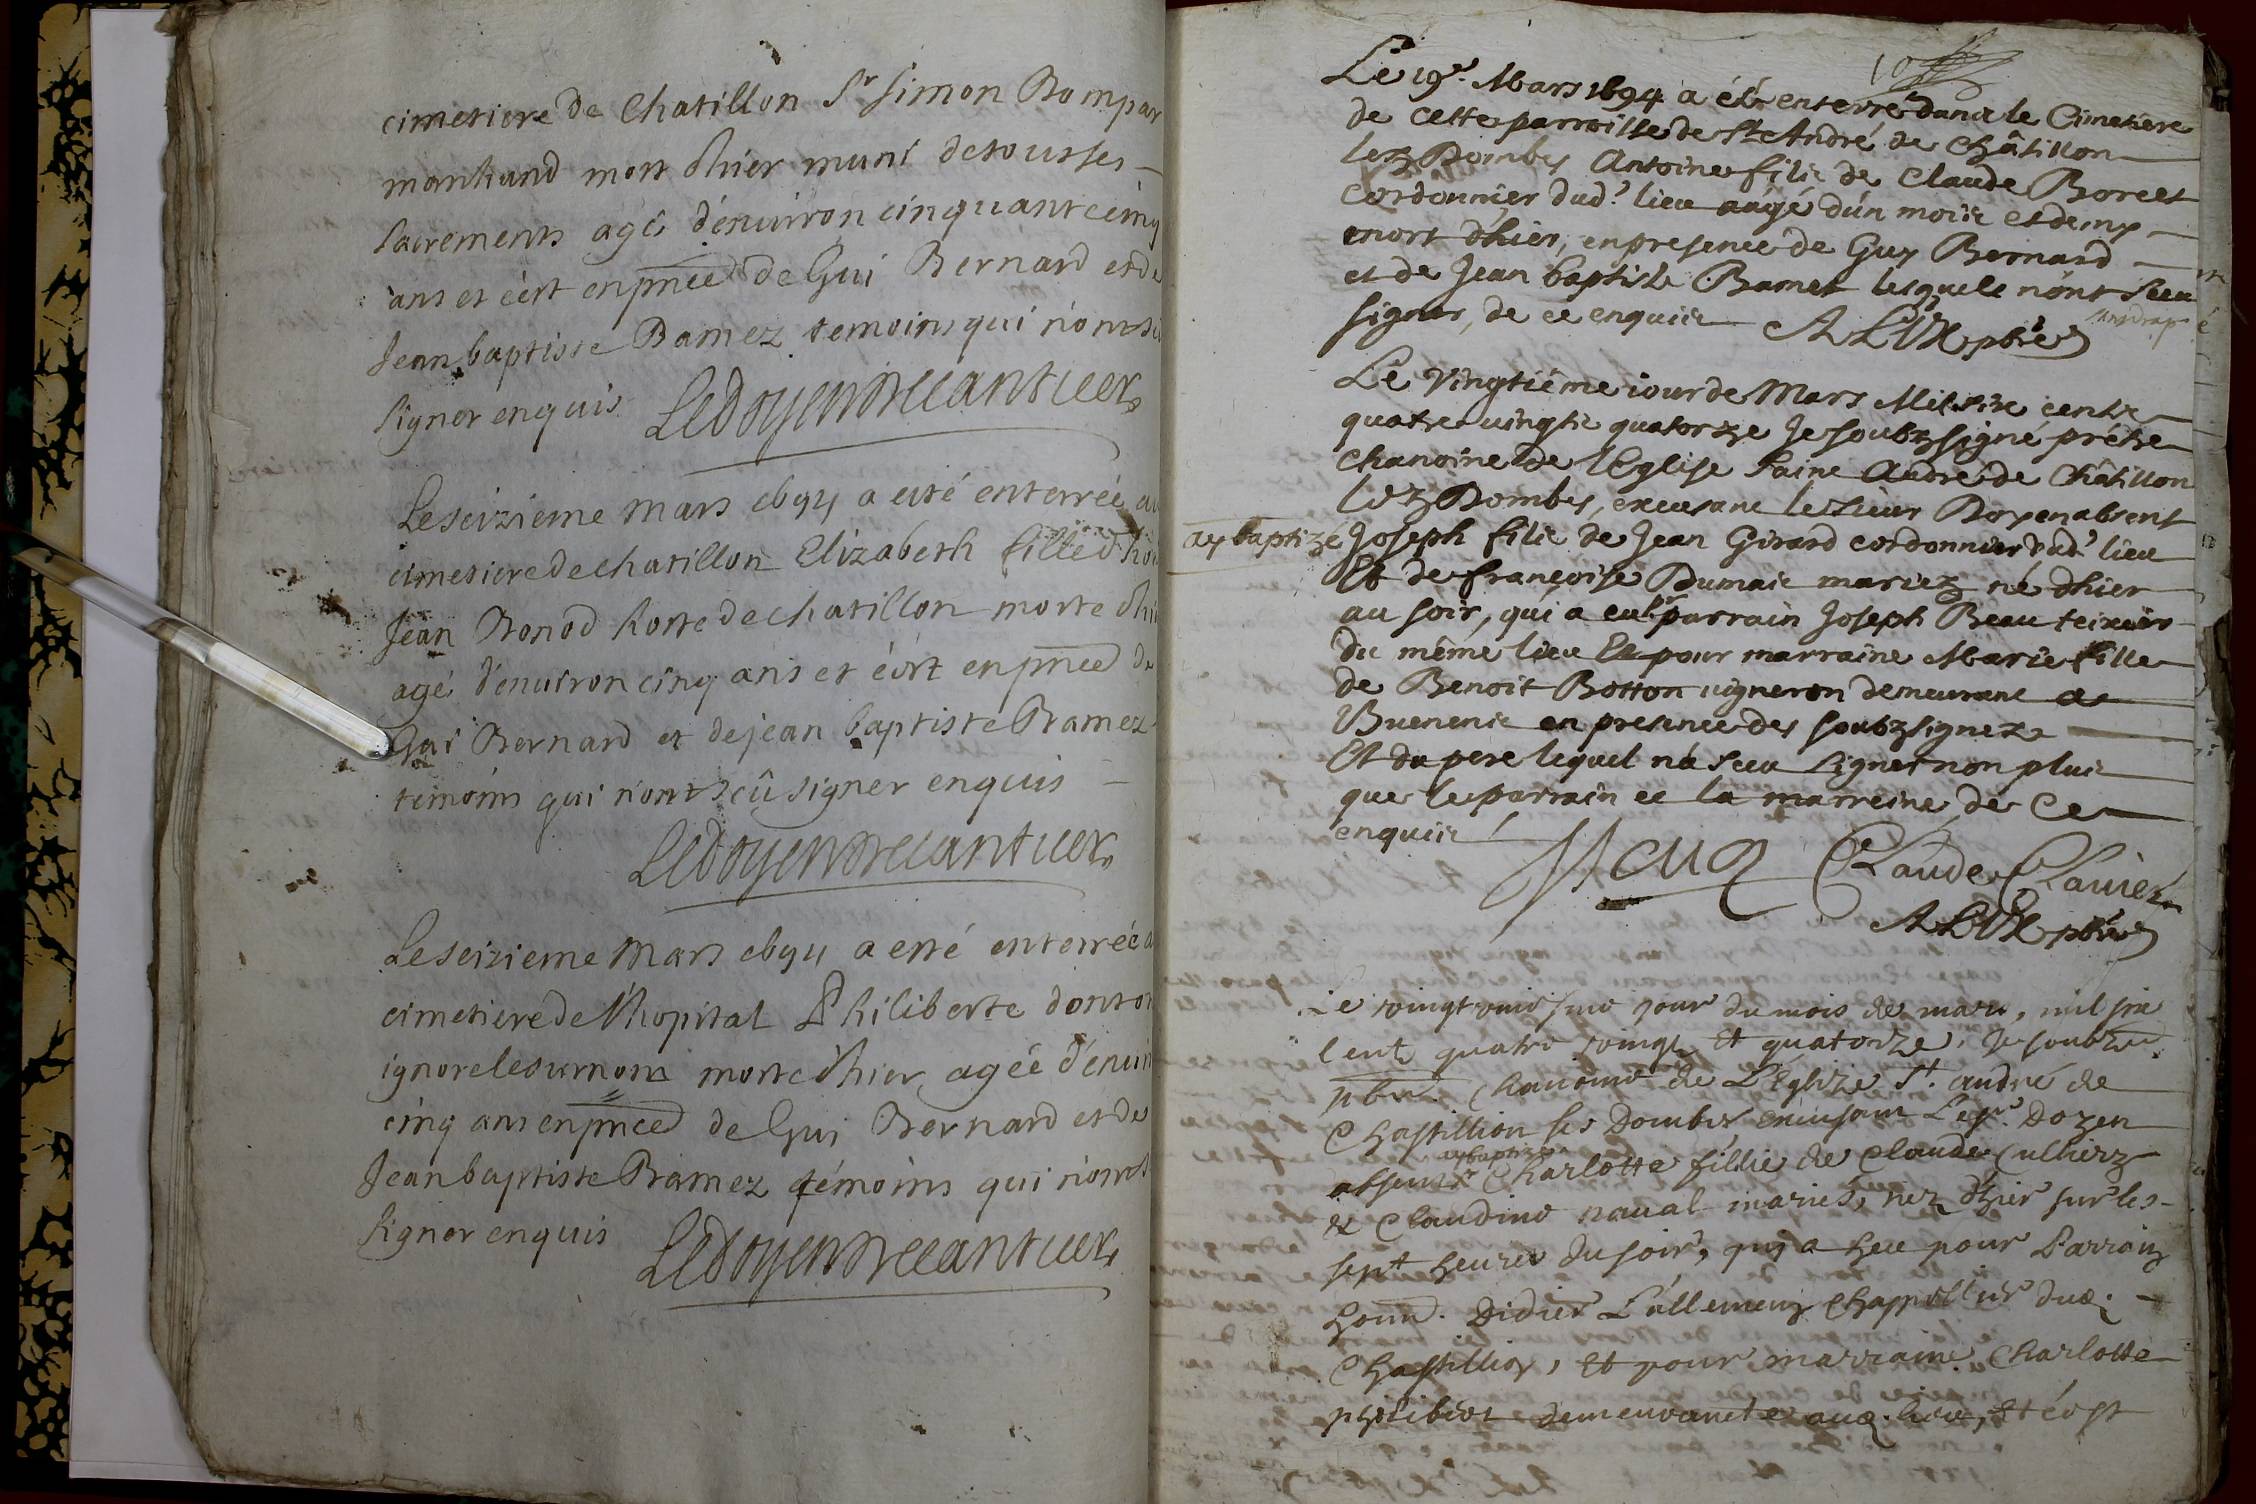 cimetiere de Chatillon Sr Simon Bompar
marchand mort d'hier muni detousses
sacrements agé d'enuiron cinquantecinq
ans et c'est enpñce de Gui Bernard et de
Jean baptiste Ramez temoins qui n'ont sc
signer enquis Ledoyen
Leseizieme Mars 1694 a esté enterrée au
cimetiere de chatillon Elizabeth fille d'ho
Jean Bonod hoste de chatillon morte d'hi
agé d'enuiron cinq ans et c'est enpñce de
Gui Bernard et de jean baptiste Ramez
témoins qui n'ont scû signer enquis
Ledoyen
Leseizieme Mars 1694 a esté enterrée a
cimetiere de l'hopital Philiberte dont on
ignore le surnom morte d'hier, agée d'enui
cinq ans enpñce de Gui Bernard et de
Jean baptiste Ramez témoins qui n'ont
signer enquis Ledoyen
10
Le 19e. Mars 1694 a été enterré dans le Cimetiere
de cette parroisse de St André de Châtillon
lez Dombes Antoine fils de Claude Borcet
Cordonnier dud.t lieu aagé d'un mois et demy
mort d'hier, en presence de Guy Bernard
et de Jean baptiste Ramet lesquels n'ont sceu
signer, de ce enquis ALVX pbre
Le Vingtiéme iour de Mars Mil six cents
quatre uingts quatorze Je soubzsigné prétre
Chanoine de l'Eglise Saint André de Châtillon
lez Dombes, excusant le sieur Doyen absent
ay baptizé Joseph fils de Jean Girard cordonnier dud.t lieu
Et de françoise Dumas mariez né d'hier
au soir, qui a eu pr parrain Joseph Beau teixier
du même lieu Et pour marraine Marie fille
de Benoit Botton uigneron demeurant a
Buenens en presence des soubzsignez
Et du pere lequel n'a sceu signer non plus
que le parrain et la marreine, de ce
enquis
Claude Clauiez
ALVX pbre
Le jour du mois de mars, mil six
cent quatre vingt et quatorze, Je soubz
pbre. Chanoine de L'Eglize St. André de
Chastillion les Dombes excusant Le sr. Doyen
absent ay baptizé Charlotte fillie de Claude Cullierz
et Claudine naual mariés, nez d'hier sur les
sept heures du soir, qui a heu pour Parrain
hon. Didier Lallemeng Chappellier dud.
Chastillion, Et pour marraine Charlotte
philibert demeurante aud. lieu, et c'est